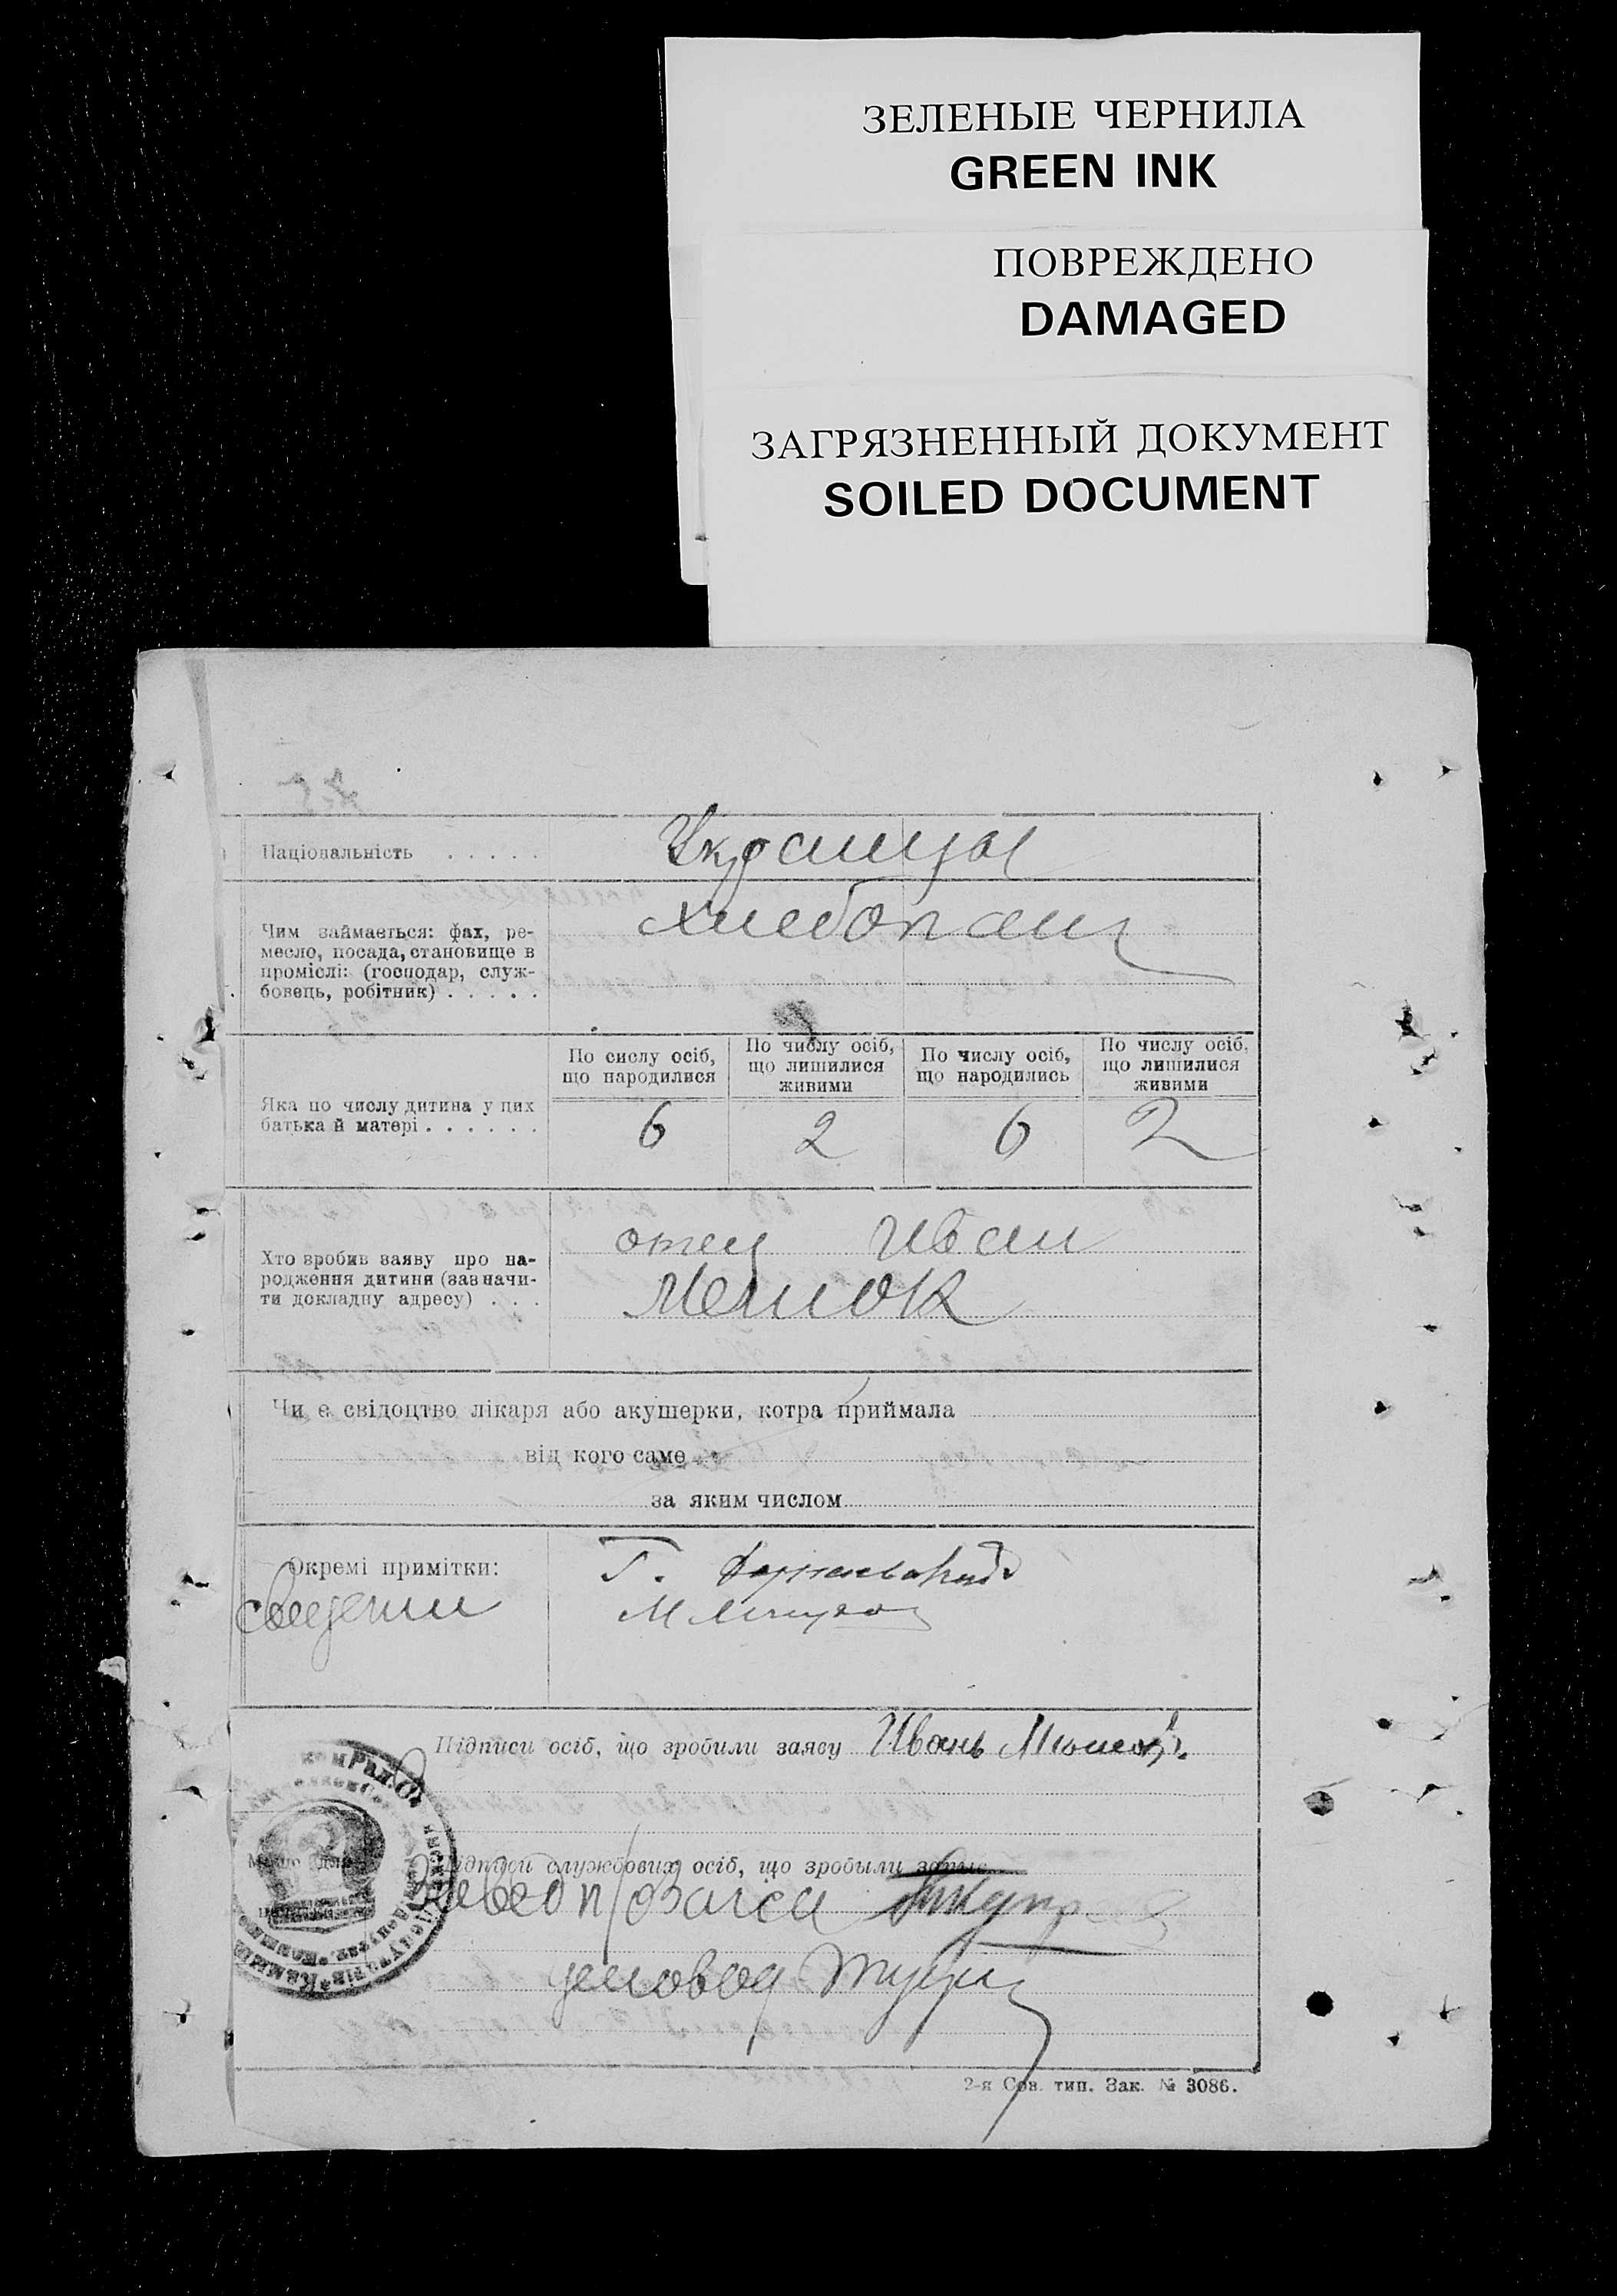 ЗЕЛЕНЫЕ ЧЕРНИЛА
GREEN INK
ПОВРЕЖДЕНО
DAMAGED
ЗАГРЯЗНЕННЫЙ ДОКУМЕНТ
SOILED DOCUMENT
Національність . . . . .
Украинцы
Чим займається: фах, ре-
месло, посада, становище в
проміслі: (господар, служ-
бовець, робітник) . . . . .
хлебопаш
По сислу осіб,
що народилися
По числу осіб,
що лишилися
живими
По числу осіб,
що народились
По числу осіб,
що лишилися
живими
Яка по числу дитина у цих
батька й матері . . . . . .
6 2 6 2
Хто зробив заяву про на-
родження дитини (зазначи-
ти докладну адресу) . . .
отец Иван
Чи є свідоцтво лікаря або акушерки, котра приймала
від кого саме
за яким числом
Окремі примітки:
Г.
М
Підписи осіб, що зробили заяву Ивань
Підписи службових осіб, що зробыли запис
Завед п/о Загса
деловод
2-я Сов. тип. Зак. № 3086.